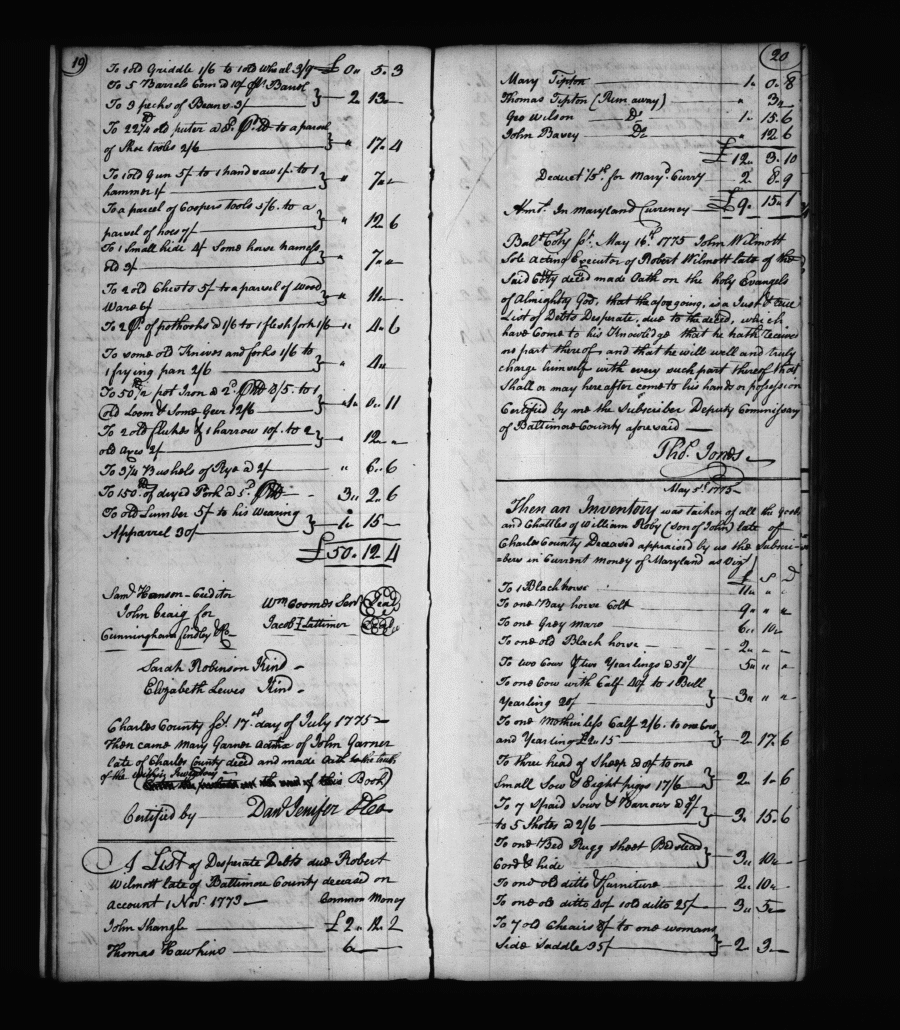 19
To 1 old Griddle 1/6 to 1 old Wheal 3/9 £ 0 „ 5 . 3
To 5 Barrels Corn @ 10/ Barrel
To 3 pecks of Beans 3/ } 2 13
To 22¾ old puter @ 8d to a parcel
of Shoe tools 2/6 } „ 17 . 4
To 1 old Gun 5/ to 1 hand saw 1/ to 1
hammer 1/ } „ 7 „
To a parcel of Coopers tools 5/6. to a
parcel of hoes 7/ } „ 12 6
To 1 Small hide 4/ Some horse harness
old 3/ } „ 7 „
To 2 old Chests 5/ to a parcel of wood
Ware 6/ } „ 11
To 2 pr of pothooks @ 1/6 to 1 flesh fork 1/6 „ 4 . 6
To some old Knives and forks 1/6 to
1 frying pan 2/6 } „ 4 „
To 50½ pot Iron @ 2d 8/5. to 1
old Loom & Some Geer 12/6 } 1 „ 0 „ 11
To 2 old flukes & 1 harrow 10/. to 2
old axes 2/ } „ 12 „
To 3¼ Bushels of Rye @ 2/ „ 6 „ 6
To 150 lb of dryed Pork @ 5d 3 „ 2 . 6
To old Lumber 5/ to his Wearing
Apparrel 30/ } 1 „ 15
£50 „ 12 4
Saml Hanson Creditor
John Craig for
Cunningham findley & Co
Wm Coomes Senr Seal
Jacob Lattimer Seal
Sarah Robinson Kind
Elizabeth Lewes Kind
Charles County Sct. 17th day of July 1775
Then came Mary Garner Admx of John Garner
late of Charles County decd and made Oath to the truth
of the within Inventory
of this Book)
Certified by Danl Jenifer
A List of Desperate Debts due Robert
Wilmott late of Baltimore County deceased on
account 1 Nov. 1773 Common Money
John Shangle £ 2 „ 12 . 2
Thomas Hawkins 6
20
Mary Tipton 1 „ 0 „ 8
Thomas Tipton (Run away) „ 3 „
Geo Wilson Do 1 „ 15 . 6
John Bavey Do „ 12 6
£ 12 „ 3 . 10
Deduct 1/5th for Maryd Curry 2 . 8 . 9
Amt. In Maryland Currency £ 9 „ 15 „ 1
Balt Coty Sct. May 16th 1775 John Wilmott
Sole acting Executor of Robert Wilmott late of the
Said Coty decd made Oath on the holy Evangels
of Almighty God, that the aforegoing, is a Just & true
List of Debts Desperate, due to the decd, which
have Come to his Knowledge that he hath receive
no part thereof, and that he will well and truly
charge himself with every such part thereof that
Shall or may hereafter come to his hands or possession
Certifyd by me the Subscriber Deputy Commissary
of Baltimore County aforesaid
Tho. Jones
May 5th 1775
Then an Inventory was taken of all the Goods
and Chattles of William Roby (son of John) late of
Charles County Deceased appraised by us the Subscri=
=bers in Current money of Maryland as Vizt
£ S D
To 1 Black horse 11 „ „
To one Bay horse Colt 9 „ „ „
To one Grey mare 6 „ 10 „
To one old Black horse 2 „ „ „
To two Cows & two Yearlings @ 50/ 5 „ „ „
To one Cow with Calf 40/ to 1 Bull
Yearling 20/ } 3 „ „ „
To one Motherless Calf 2/6. to one Cow
and Yearling £2 „ 15 } 2 17 . 6
To three head of Sheep @ 8/ to one
Small Sow & Eight piggs 17/6 } 2 . 1 . 6
To 7 Spaid Sows & Barrows @ 9/
to 5 Shotes @ 2/6 } 3 . 15 . 6
To one Bed Rugg Sheet Bedstead
Cord & hide } 3 „ 10
To one old ditto & furniture 2 . 10
To one old ditto 40/ 1 old ditto 25/ 3 „ 5
To 7 old Cheairs 8/ to one womans
Side Saddle 35/ } 2 3